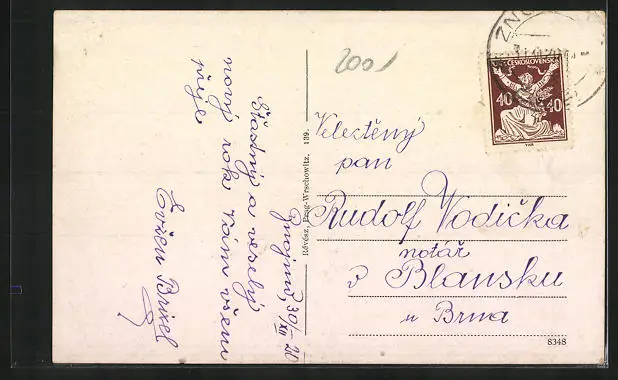 Znojmo, 30/XII 20
Šťastný a veselý
nový rok Vám všem
přeje
Evžen Brixel
Révész, Prag-Wrschowitz, 139.
2001
ČESKOSLOVENSKÁ
40 40
Velectěný
pan
Rudolf Vodička
notář
v Blansku
u Brna
8348